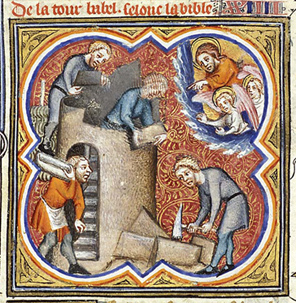 De la tour babel. selonc la bible